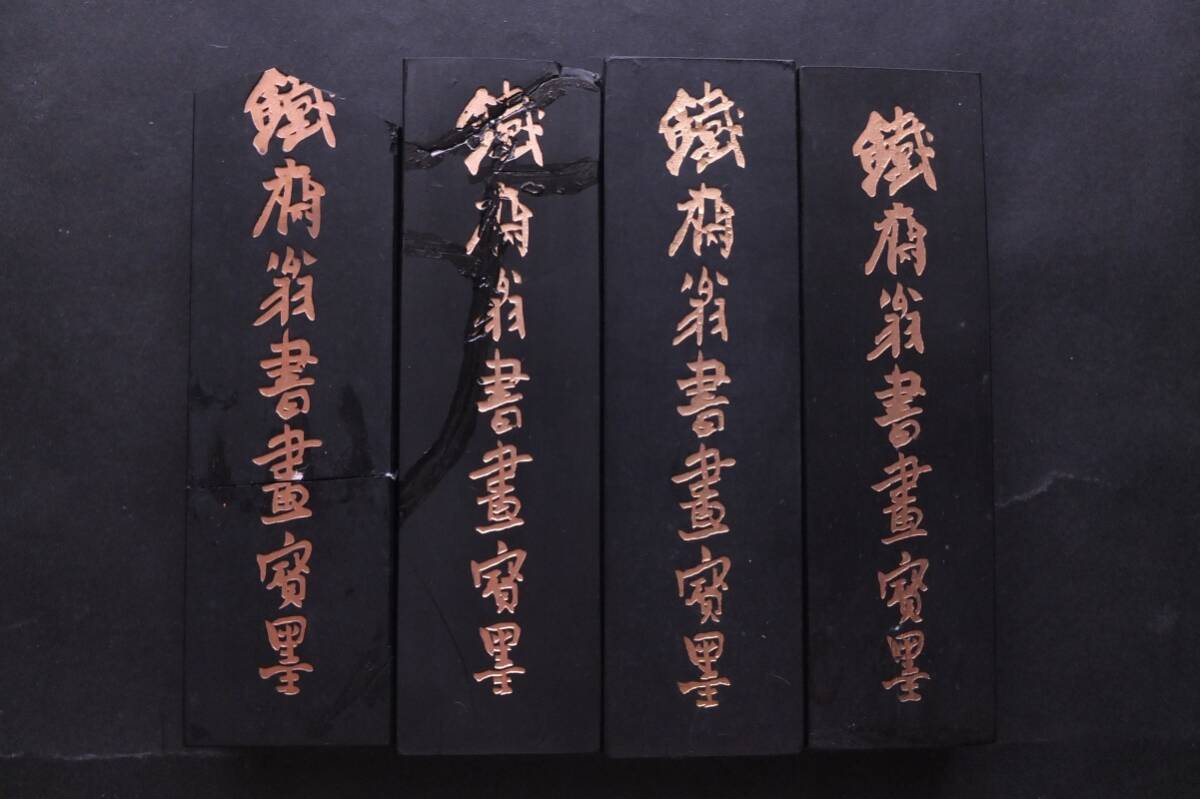 鐵齋翁書畫寳墨
鐵齋翁書畫寳墨
鐵齋翁書畫寳墨
鐵齋翁書畫寳墨